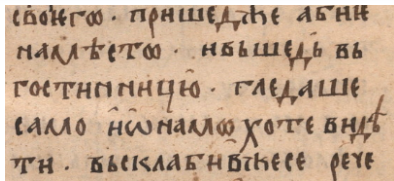 своегѡ · пришедь же абиѥ
на мѣстѡ · и вьшедь вь
гостинницꙋ · гледаше
само и ѡнамѡ хоте видѣ
ти · вьсклабив же се рече